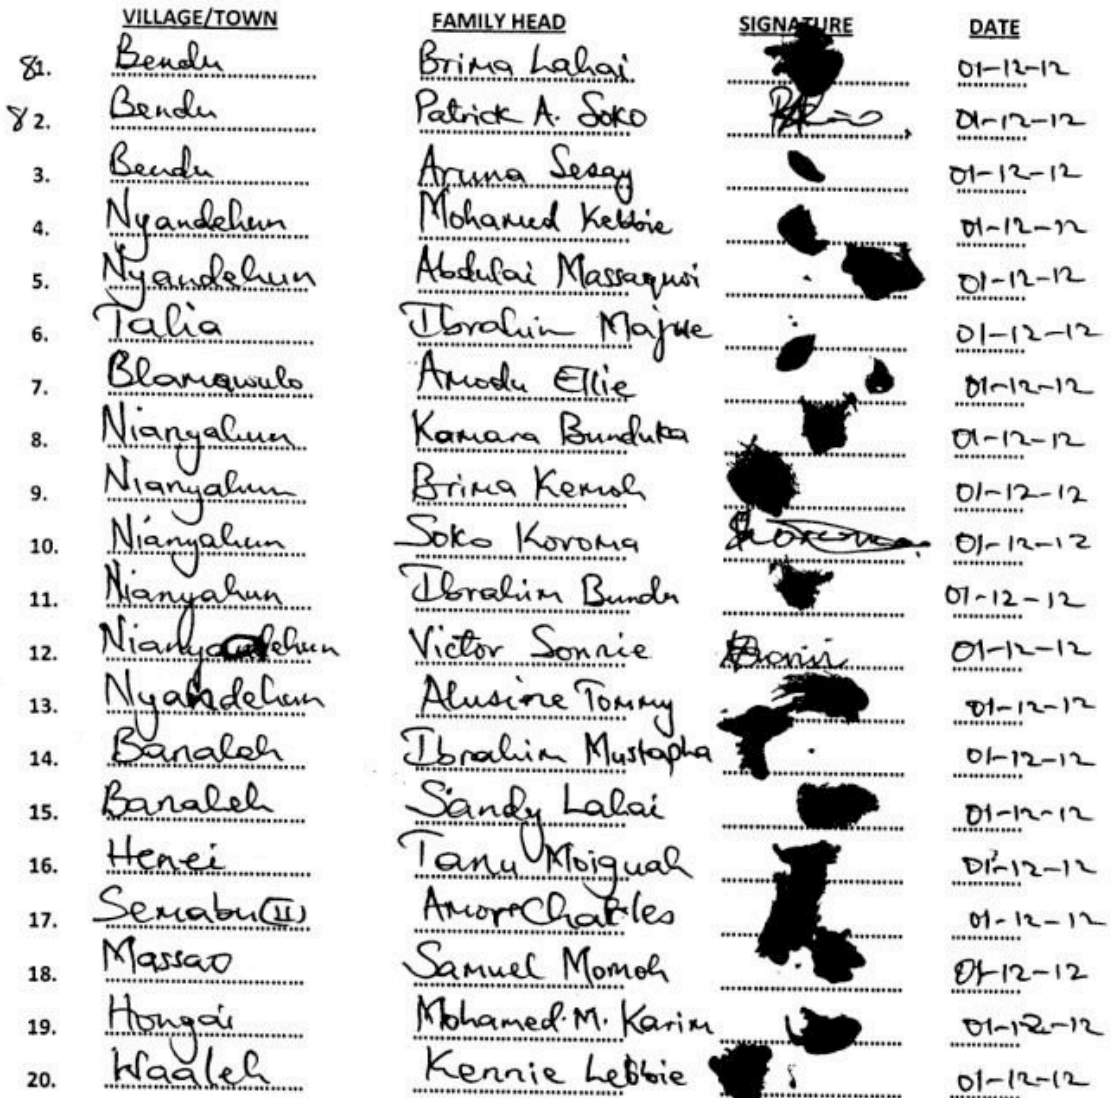 VILLAGE/TOWN FAMILY HEAD SIGNATURE DATE
81. Bendu Brima Lahai 01-12-12
82. Bendu Patrick A. Soko 01-12-12
3. Bendu Aruna Sesay 01-12-12
4. Nyandehun Mohamed Kebbie 01-12-12
5. Nyandehun Abdulai Massaquoi 01-12-12
6. Talia Ibrahim 01-12-12
7. Blamawulo Amodu Ellie 01-12-12
8. Nianyahun Kamara Bunduka 01-12-12
9. Nianyahun Brima Kemoh 01-12-12
10. Nianyahun Soko Koroma 01-12-12
11. Nianyahun Ibrahim Bundu 01-12-12
12. Victor Sonnie 01-12-12
13. Nyandehun Alusine Tommy 01-12-12
14. Banaleh Ibrahim Mustapha 01-12-12
15. Banaleh Sandy Lahai 01-12-12
16. Henei Tanu Moiguah 01-12-12
17. Semabu (II) Charles 01-12-12
18. Massao Samuel Momoh 01-12-12
19. Hongai Mohamed. M. Karim 01-12-12
20. Waaleh Kennie Lebbie 01-12-12